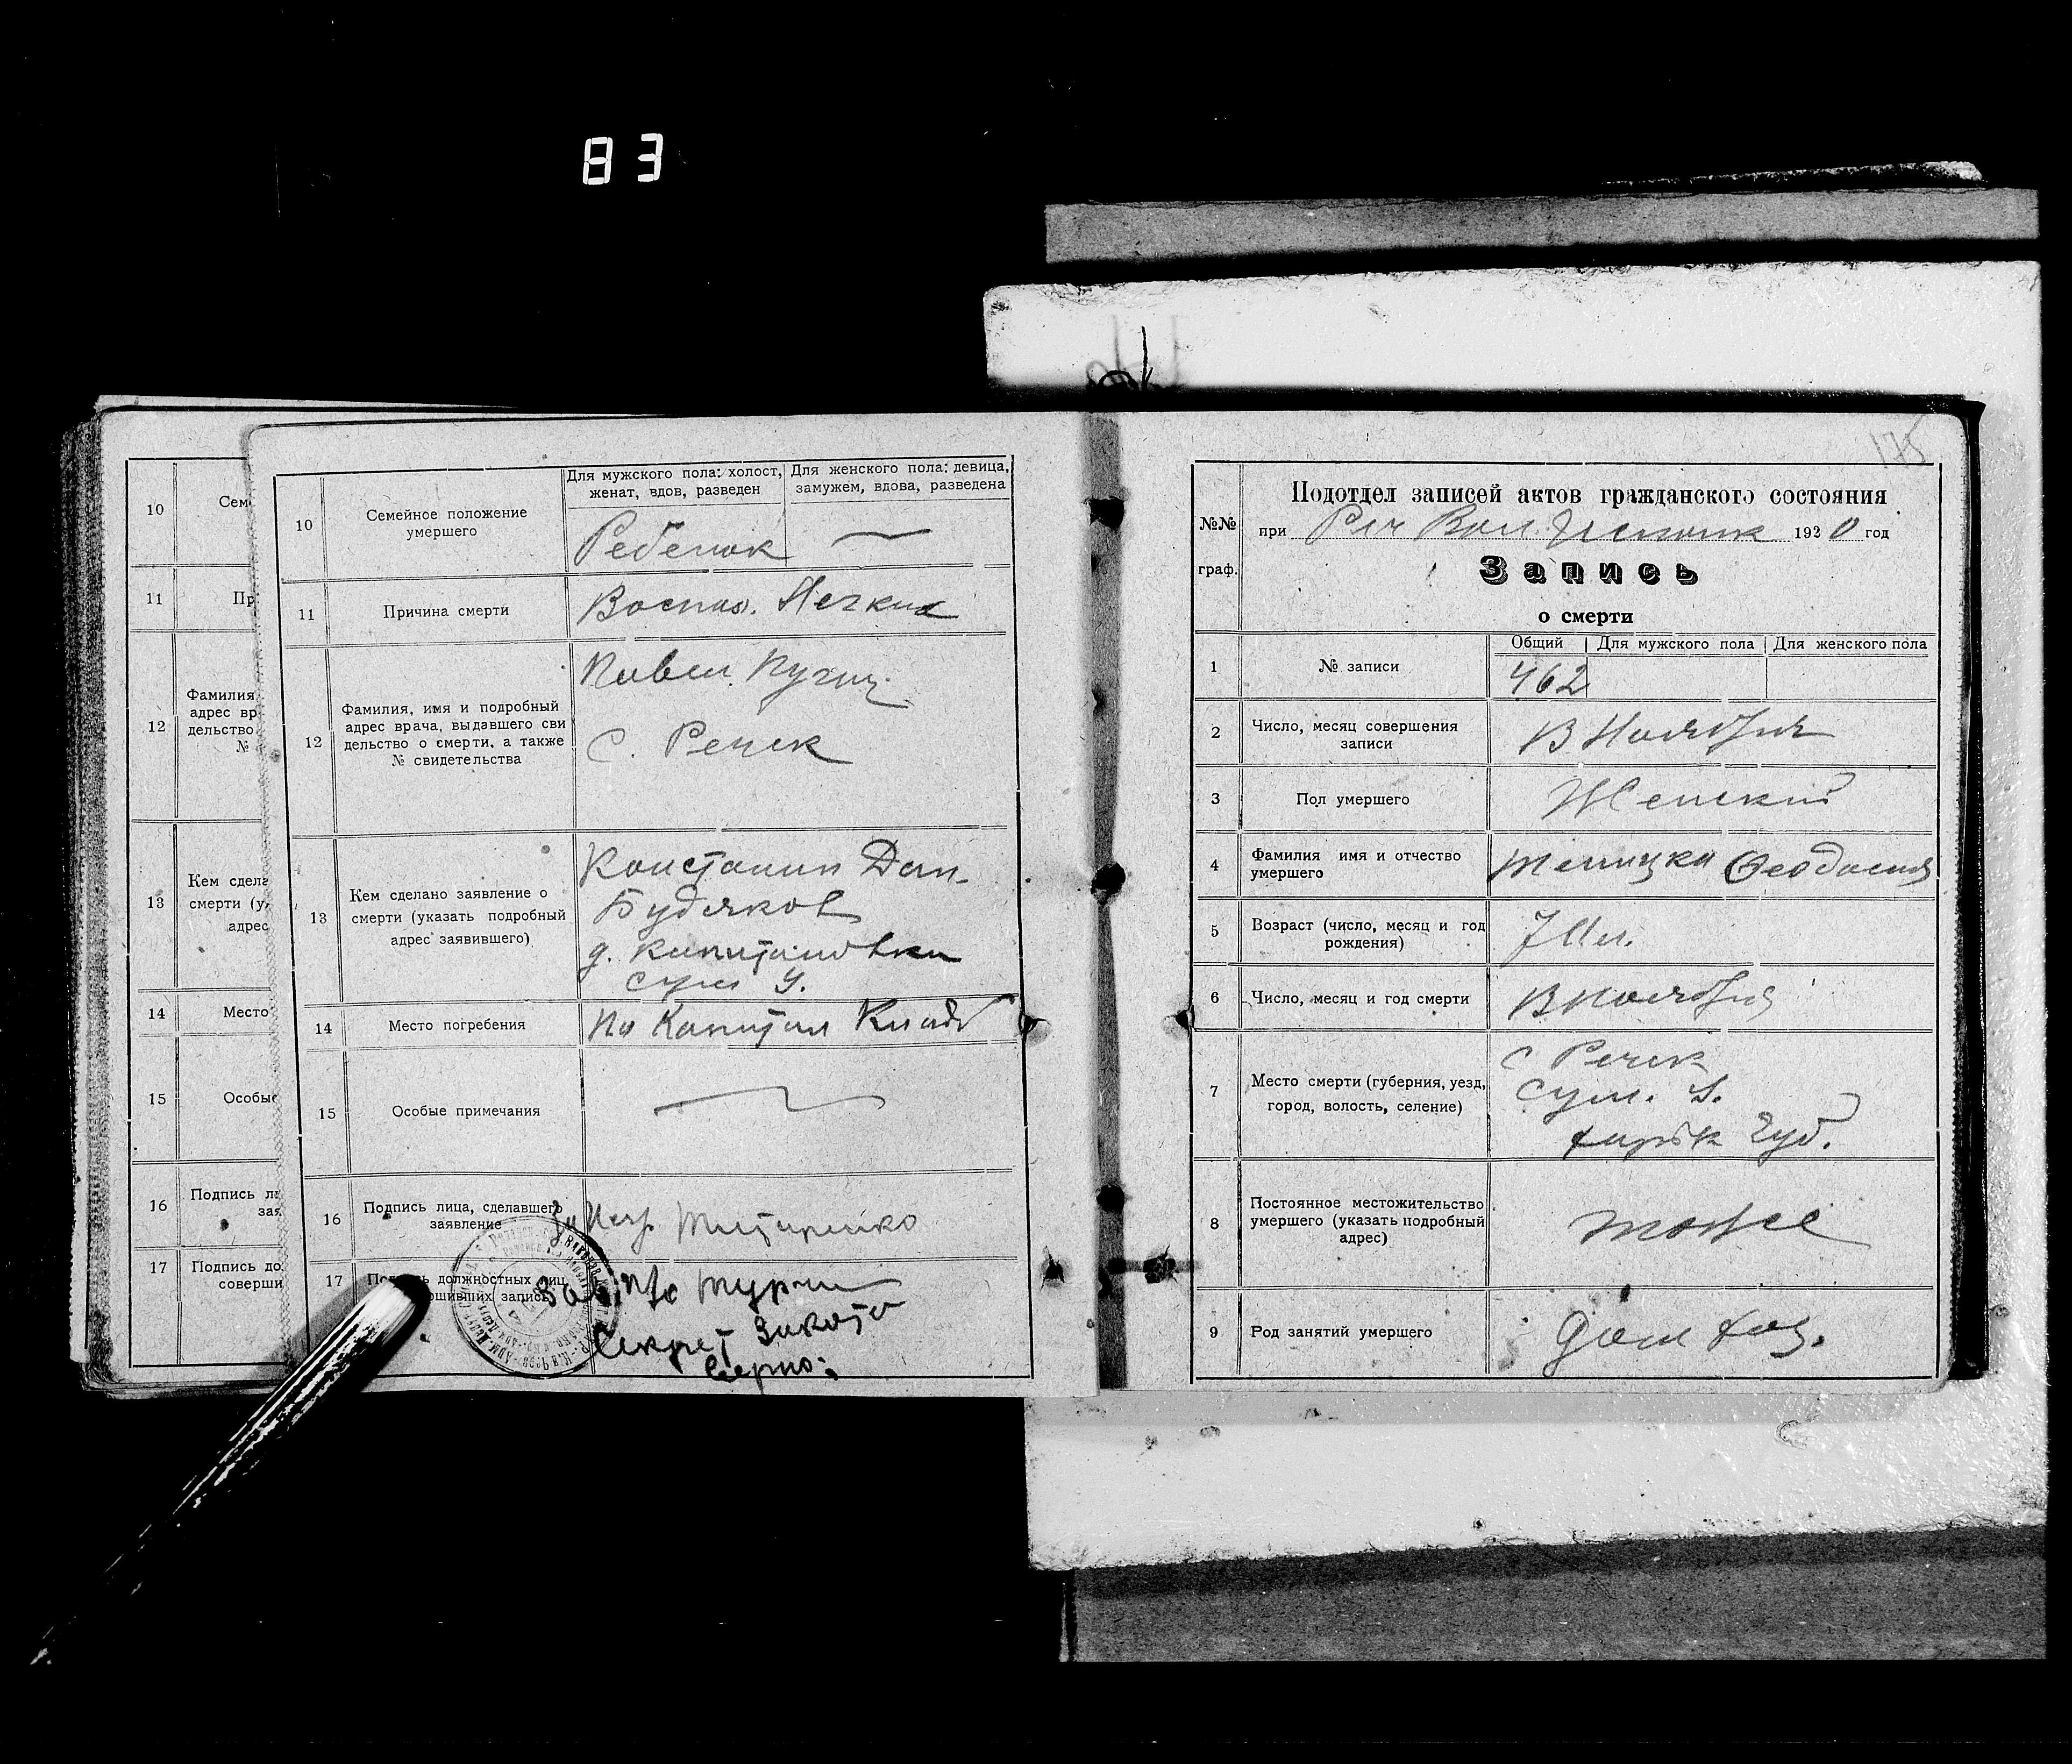 83
10
Сем
11
Пр
12
Фамилия
адрес вр
дельство
№
13
Кем сдела
смерти (у
адрес
14
Место
15
Особые
16
Подпись ли
зая
17
Подпись до
соверши
10
Семейное положение
умершего
Для мужского пола: холост,
женат, вдов, разведен
Для женского пола: девица,
замужем, вдова, разведена
Ребенок
11
Причина смерти
Воспал. Легких
12
Фамилия, имя и подробный
адрес врача, выдавшего сви
дельство о смерти, а также
№ свидетельства
Павел
с. Речек
13
Кем сделано заявление о
смерти (указать подробный
адрес заявившего)
Константин Дан
Будяков
д. Капитановка
Сум У.
14
Место погребения
На Капитан Кладб
15
Особые примечания
16
Подпись лица, сделавшего
заявление
Титаренко
17
должностных лиц
Секрет
175
№№
граф.
Подотдел записей актов гражданского состояния
при Реч Вол. Исполк 1920 год
Запись
о смерти
Общий
Для мужского пола
Для женского пола
1
№ записи
462
2
Число, месяц совершения
записи
Ноября
3
Пол умершего
Женский
4
Фамилия имя и отчество
умершего
Феодосия
5
Возраст (число, месяц и год
рождения)
7
6
Число, месяц и год смерти
Ноября
7
Место смерти (губерния, уезд,
город, волость, селение)
с Речек
Сум. У.
Харьк Губ.
8
Постоянное местожительство
умершего (указать подробный
адрес)
тоже
9
Род занятий умершего
Дом хоз.